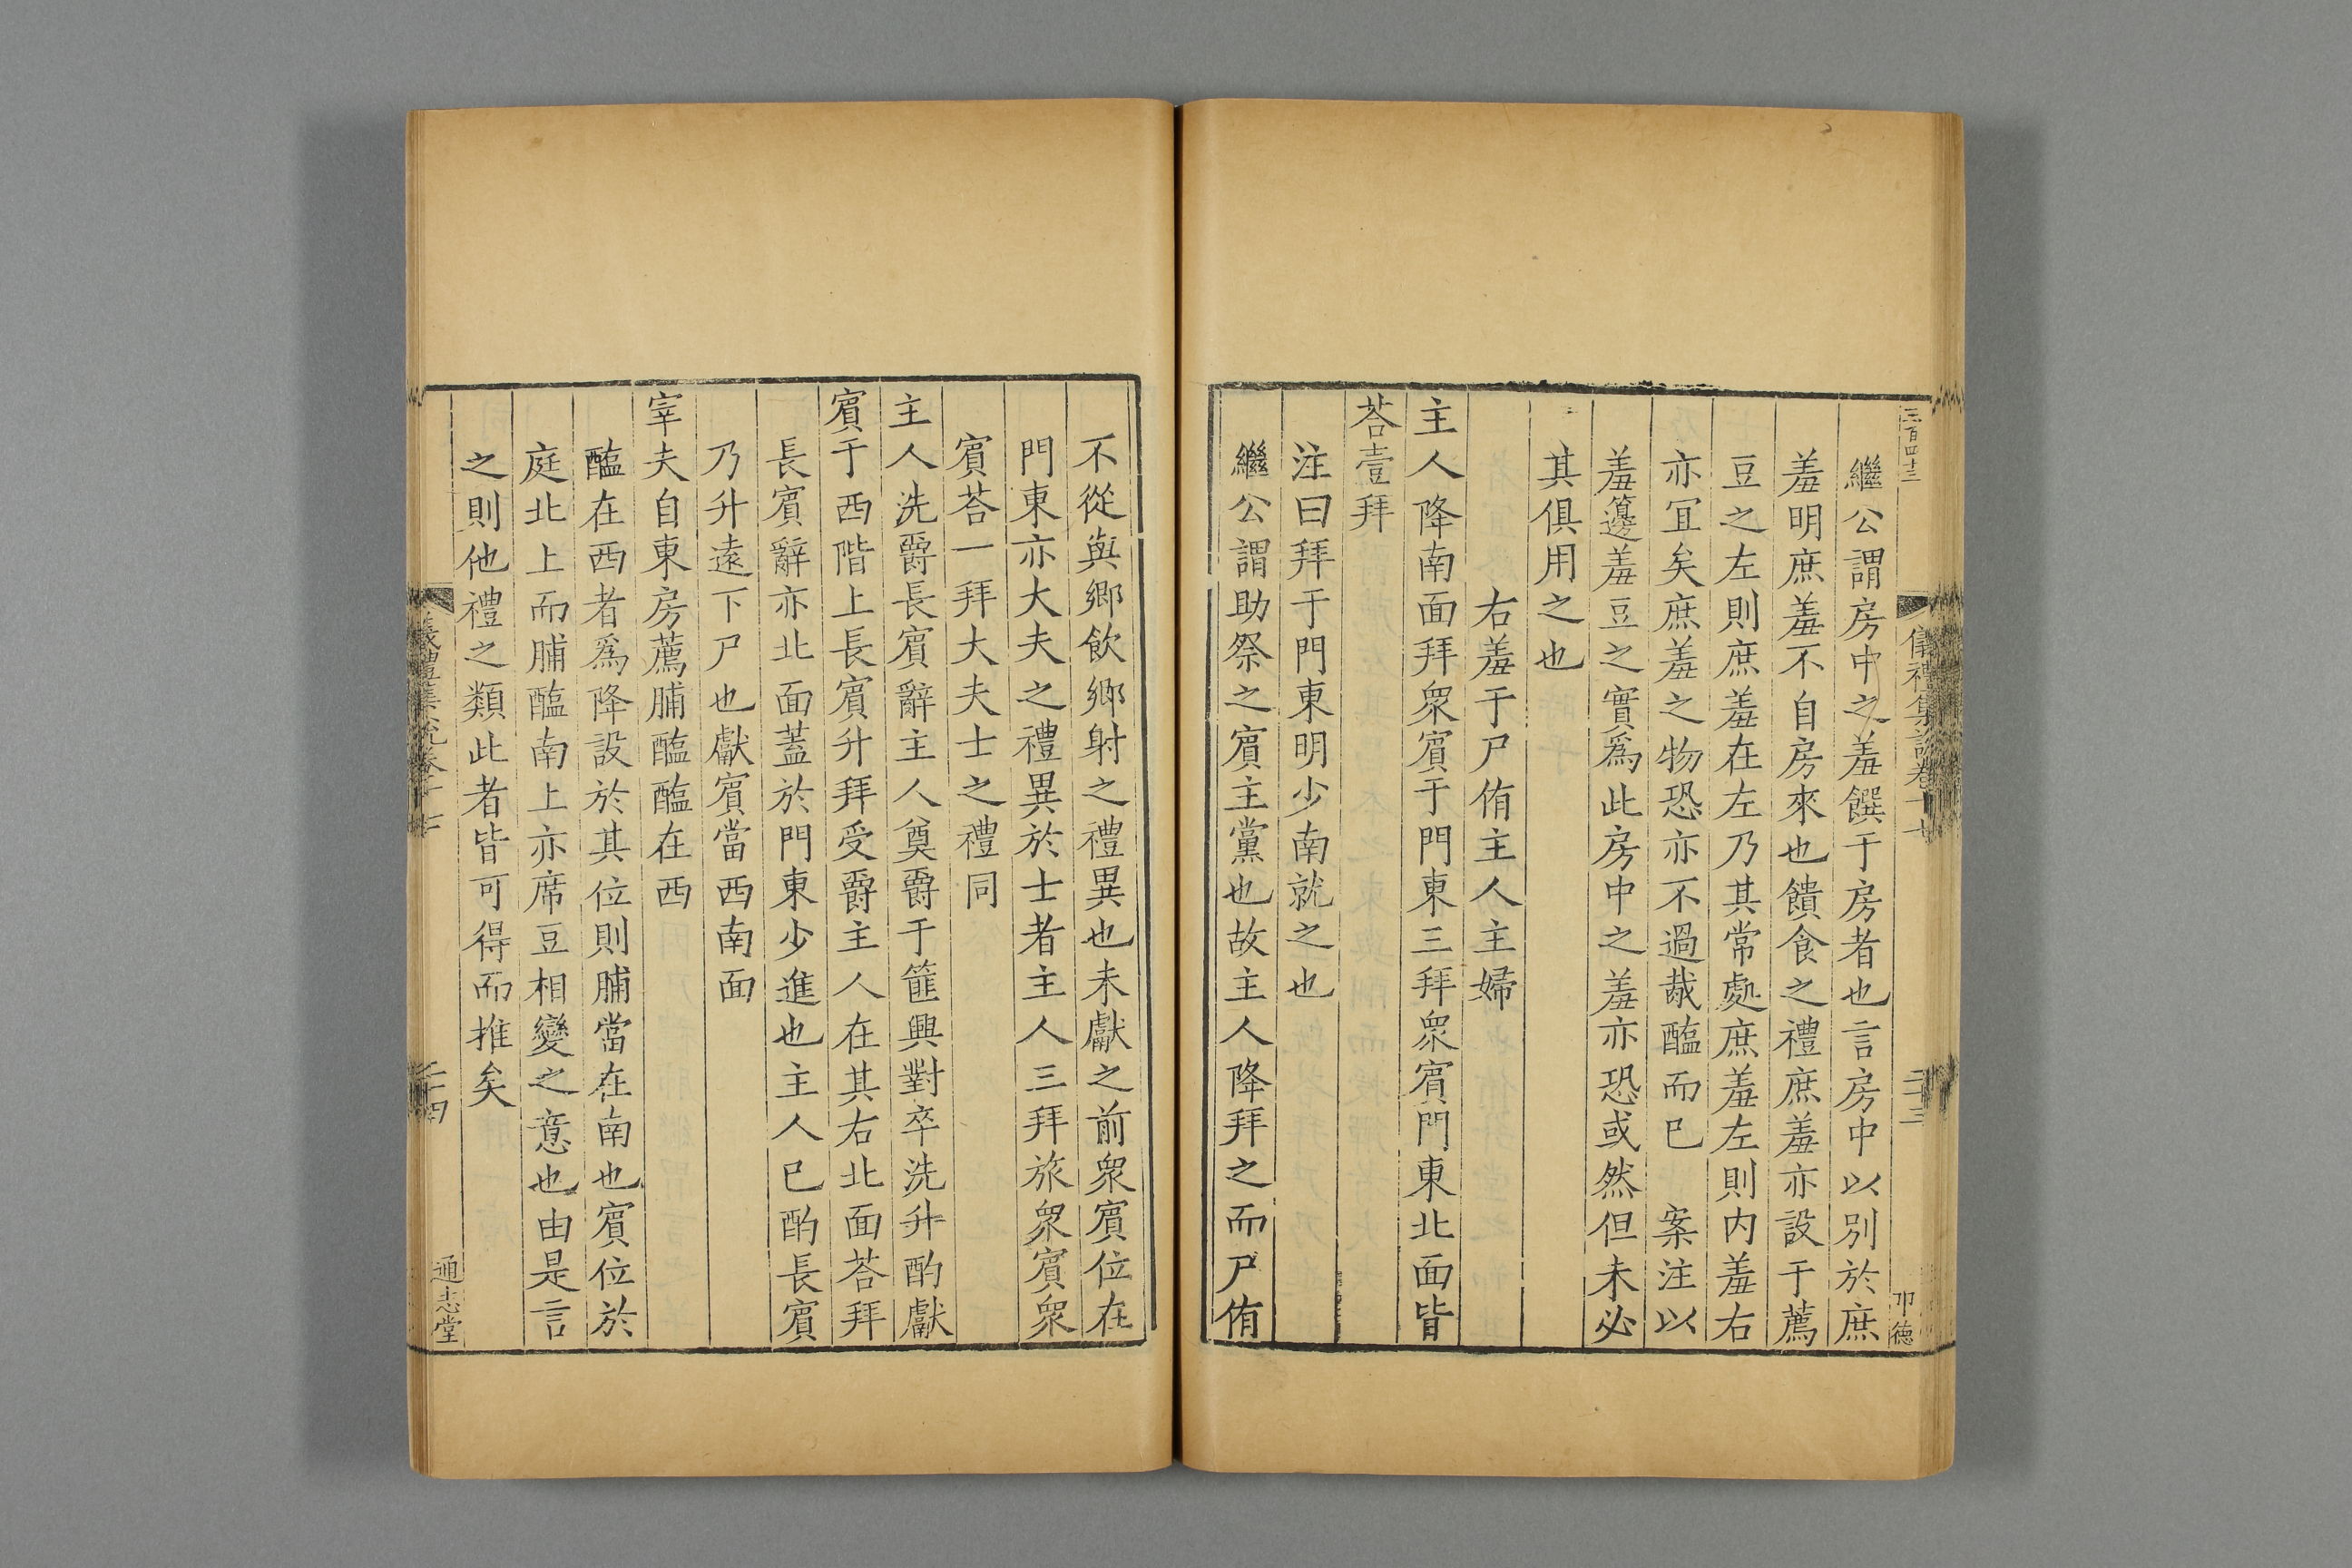 三百四十三
儀禮集說卷十七
二十三
卬德
繼公謂房中之羞饌于房者也言房中以別於庶
羞明庶羞不自房來也饋食之禮庶羞亦設于薦
豆之左則庶羞在左乃其常處庶羞左則内羞右
亦冝矣庶羞之物恐亦不過胾醢而已　案注以
羞籩羞豆之實爲此房中之羞亦恐或然但未必
其俱用之也
右羞于尸侑主人主婦
主人降南面拜衆賔于門東三拜衆賔門東北面皆
荅壹拜
注曰拜于門東明少南就之也
繼公謂助祭之賔主黨也故主人降拜之而尸侑
不從與鄉飲鄉射之禮異也未獻之前衆賔位在
門東亦大夫之禮異於士者主人三拜旅衆賔衆
賔荅一拜大夫士之禮同
主人洗爵長賔辭主人奠爵于篚興對卒洗升酌獻
賔于西階上長賔升拜受爵主人在其右北面荅拜
長賔辭亦北面蓋於門東少進也主人已酌長賔
乃升遠下尸也獻賔當西南面
宰夫自東房薦脯醢醢在西
醢在西者爲降設於其位則脯當在南也賔位於
庭北上而脯醢南上亦席豆相變之意也由是言
之則他禮之類此者皆可得而推矣
儀禮集說卷十七
二十四
通志堂